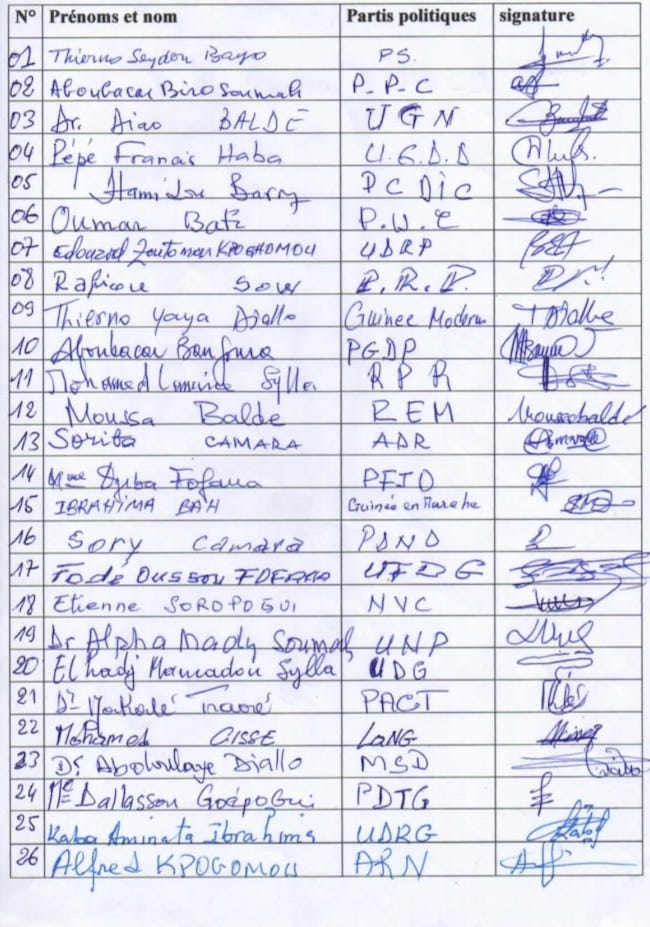 N° Prénoms et nom Partis politiques signature
01 Thierno Seydou Bayo PS.
02 Aboubacar Biro Soumah P-P-C
03 Dr. Diao BALDÉ UGN
04 Pépé Francis Haba U.G.D.D
05 Hamidou Barry PCDIC
06 Oumar P.U.C
07 Edouard Zoutomou KPOGHOMOU UDRP
08 SOW P.R.P.
09 Thierno Yaya Diallo Guinée Moderne TDiallo
10 Aboubacar Bangoura PGDP
11 Mohamed Lamine Sylla RPR
12 Moussa Balde REM Moussabaldé
13 Soriba CAMARA ADR Camara
14 Mme Fofana
15 IBRAHIMA BAH Guinée en Marche
16 Sory Camara PDND
17 Fodé OUSSOU UFDG
18 Etienne SOROPOGUI NVC
19 Dr Alpha Mady Soumah UNP
20 Elhadj Mamadou Sylla UDG
21 Dr Makalé Traoré PACT
22 Mohamed CISSE LANG
23 Dr Aboulaye Diallo MSD
24 Me Dallasson Goépogui PDTG
25 Kaba Aminata Ibrahima UDRG
26 Alfred KPOGOMOU ARN